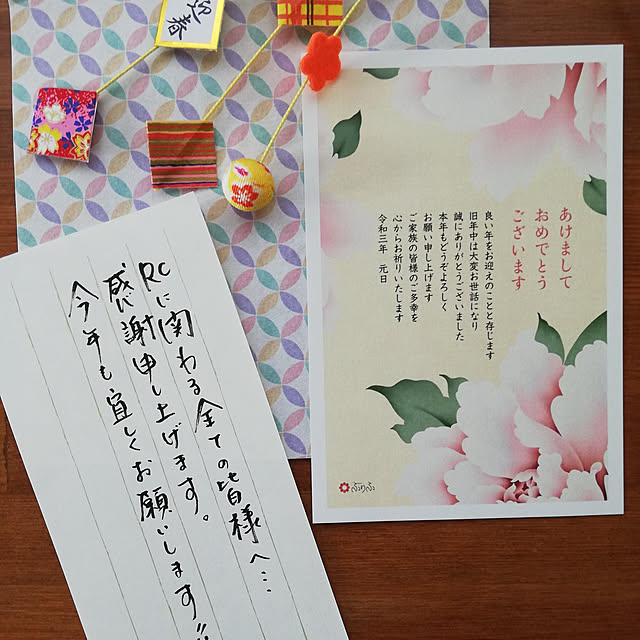 迎春
あけまして
おめでとう
ございます
良い年をお迎えのことと存じます
旧年中は大変お世話になり
誠にありがとうございました
本年もどうぞよろしく
お願い申し上げます
ご家族の皆様のご多幸を
心からお祈りいたします
令和三年 元日
ぶりふ
RCに関わる全ての皆様へ…
感謝申し上げます。
今年も宜しくお願いします!!